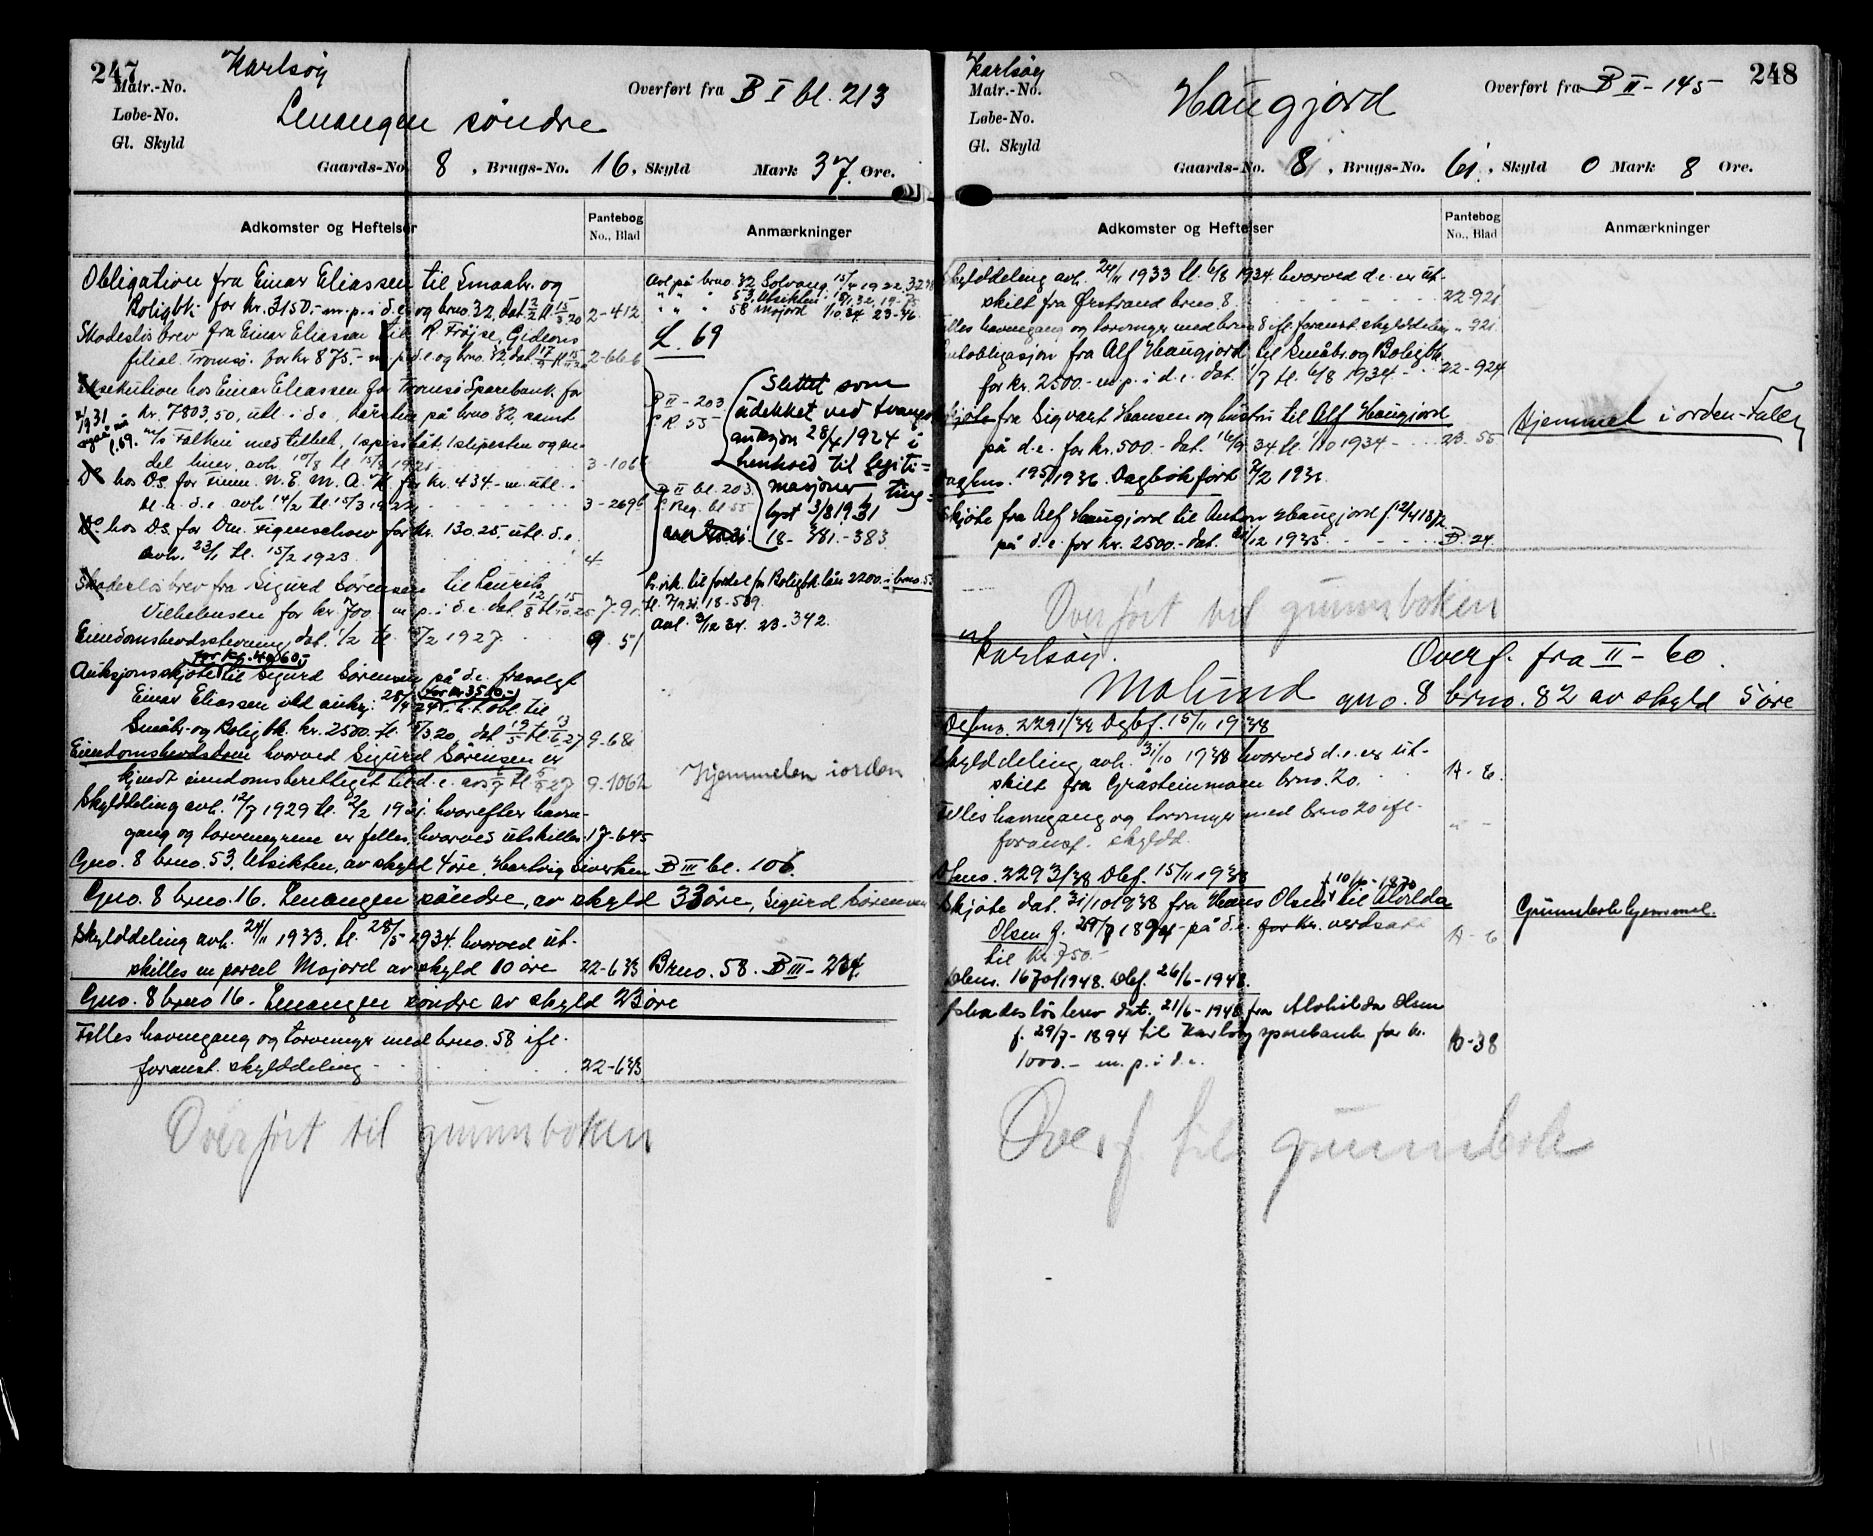 247
Karlsøy
Matr.-No.
Overført fra B I bl. 213
Løbe-No.
Lenangen søndre
Gl. Skyld
Gaards-No. 8, Brugs-No. 16, Skyld Mark 37 Øre.
Adkomster og Heftelser
Pantebog No., Blad
Anmærkninger
Obligation fra Einar Eliassen til Smaabr. og
Boligbk. for kr. 3150,- m. p. i d.e. og brno. 32, dat. 2/2 tl. 15/3 20 2-412
Skadesløsbrev fra Einar Eliassen til R. Frøjse, Gideons
filial Tromsø for kr 875.- m. p. i d.e. og brno. 32, dat. 2-666
Eksekution hos Einar Eliassen for Tromsø Sparebank for
kr. 7803,50, utl. i d.e. hørsten på brno 32, samt
m/s Falken med tilbeh.
del liner, avh. 10/8 tl. 15/8 1921 3-1066
Do hos Ds. for firm. N. E. M. A. for kr. 434.- m. utl. i
bl. a. d.e. avh. 14/2 tl. 15/3 1922 3-2696
Do hos Ds. for Dm. Figenschow for kr. 130.25, utl. d.e.
avh. 23/1 tl. 15/2 1923 4
Skadesløsbrev fra Sigurd Sørensen til Laurits
Vilhelmsen for kr. 700 m. p. i d.e. dat. 12/8 tl. 15/10 25 7-91
Eiendomshevdsstevning dat. 1/2 tl. 15/2 1927 9-51
for kr. 4060,-
Auksjonsskjøte til Sigurd Sørensen på d.e. frasolgt
Einar Eliassen ved auksj. 28/4 24
for kr. 3510.-
obl. til
Småbr.- og Boligbk. kr. 2500. tl. 15/3.20, dat. 19/5 tl. 13/6 27 9-681
Eiendomshevdsdom hvorved Sigurd Sørensen er
kjendt eiendomsberettiget til d.e. 9-1062
Skylddeling avh. 12/7 1929 tl. 2/2 1931. hvorefter havne-
gang og torvemyrene er felles, hvorved utskilles: 17-645
Gno. 8 brno. 53, Utsikten, av skyld 4 øre, Hartvig Sivertsen B III bl. 106.
Gno. 8 brno. 16. Lenangen søndre, av skyld 33 øre, Sigurd Sørensen
Skylddeling avh. 24/11 1933. tl. 28/5 1934. hvorved ut-
skilles en parcel Mojord av skyld 10 øre 22-633 Brno. 58. B III - 234.
Gno. 8 brno 16. Lenangen søndre av skyld 23 øre
Felles havnegang og torvemyr med brno. 58 ifl.
foranst. skylddeling 22-633
Overført til grunnboken
Avl på brno. 32 Solvang 15/4 1922. 3298
53 Utsikten
58 Mojord 23-46
L. 69
B II - 203
P R 55
Slettet som
udekket ved tvangs
auksjon 28/4 1924 i
henhold til legiti-
masjoner, ting-
lyst 3/8 1931
18 - 381. - 383
B II bl. 203.
P. Reg. bl 55
Pr. vik. til fordel for Boligbk. lån 2200.- i brno. 53
18-589.
Avl. 3/12 34. 23-342.
Hjemmelen i orden
248
Karlsøy
Matr.-No.
Haugjord
Overført fra B II - 145
Løbe-No.
Gl. Skyld
Gaards-No. 8, Brugs-No. 61, Skyld 0 Mark 8 Øre.
Adkomster og Heftelser
Pantebog No., Blad
Anmærkninger
Skylddeling avh. 24/11 1933 tl. 6/8 1934. hvorved d.e. er ut-
skilt fra Ørstrand brno. 8. 22-921
Felles havnegang og torvmyr med brno. 8 ifl. foranst. skylddeling " 921
Panteobligasjon fra Alf Haugjord til Småbr. og Boligbk.
for kr. 2500.- m. p. i d.e. dat. 1/7 tl. 6/8 1934 22-924
Skjøte fra Sigvart Hansen og hustru til Alf Haugjord
på d.e. for kr. 500.- dat. 16/9 34 tl. 1/10 1934 23-55
Hjemmel i orden
Dagbns. 195/1936. Dagbokført 7/2 1936
Skjøte fra Alf Haugjord til Anton Haugjord f. 12/4 1872
på d.e. for kr. 2500.- dat. 21/12 1935 B-24
Overført til grunnboken
Karlsøy. Overf. fra II - 60.
Molund gno. 8 brno. 82 av skyld 5 øre
Dbfno. 2291/38 Dgbf. 15/11 1938
Skylddeling avh. 31/10 1938 hvorved d.e. er ut-
skilt fra Gråsteinmoen brno. 20. A-6.
Felles havnegang og torvmyr med brno 20 ifl.
foranst. skyldd.
Dfno. 2293/38 Dbf. 15/11 1938
f. 10/6-1870
Skjøte dat. 31/10 1938 fra Hans Olsen til Alvilda
Olsen f. 29/7 1894 på d.e. for kr. verdsatt
til kr. 750.- A-6
Grunnbokshjemmel.
Dbno. 1670/1948. Dbf. 26/6-1948.
Skadesløsbrev dat. 21/6-1948 fra Alvhilda Olsen
f. 29/7-1894 til Karlsøy sparebank for kr.
1000.- m. p. i d.e. A0-38
Overf. til grunnbok